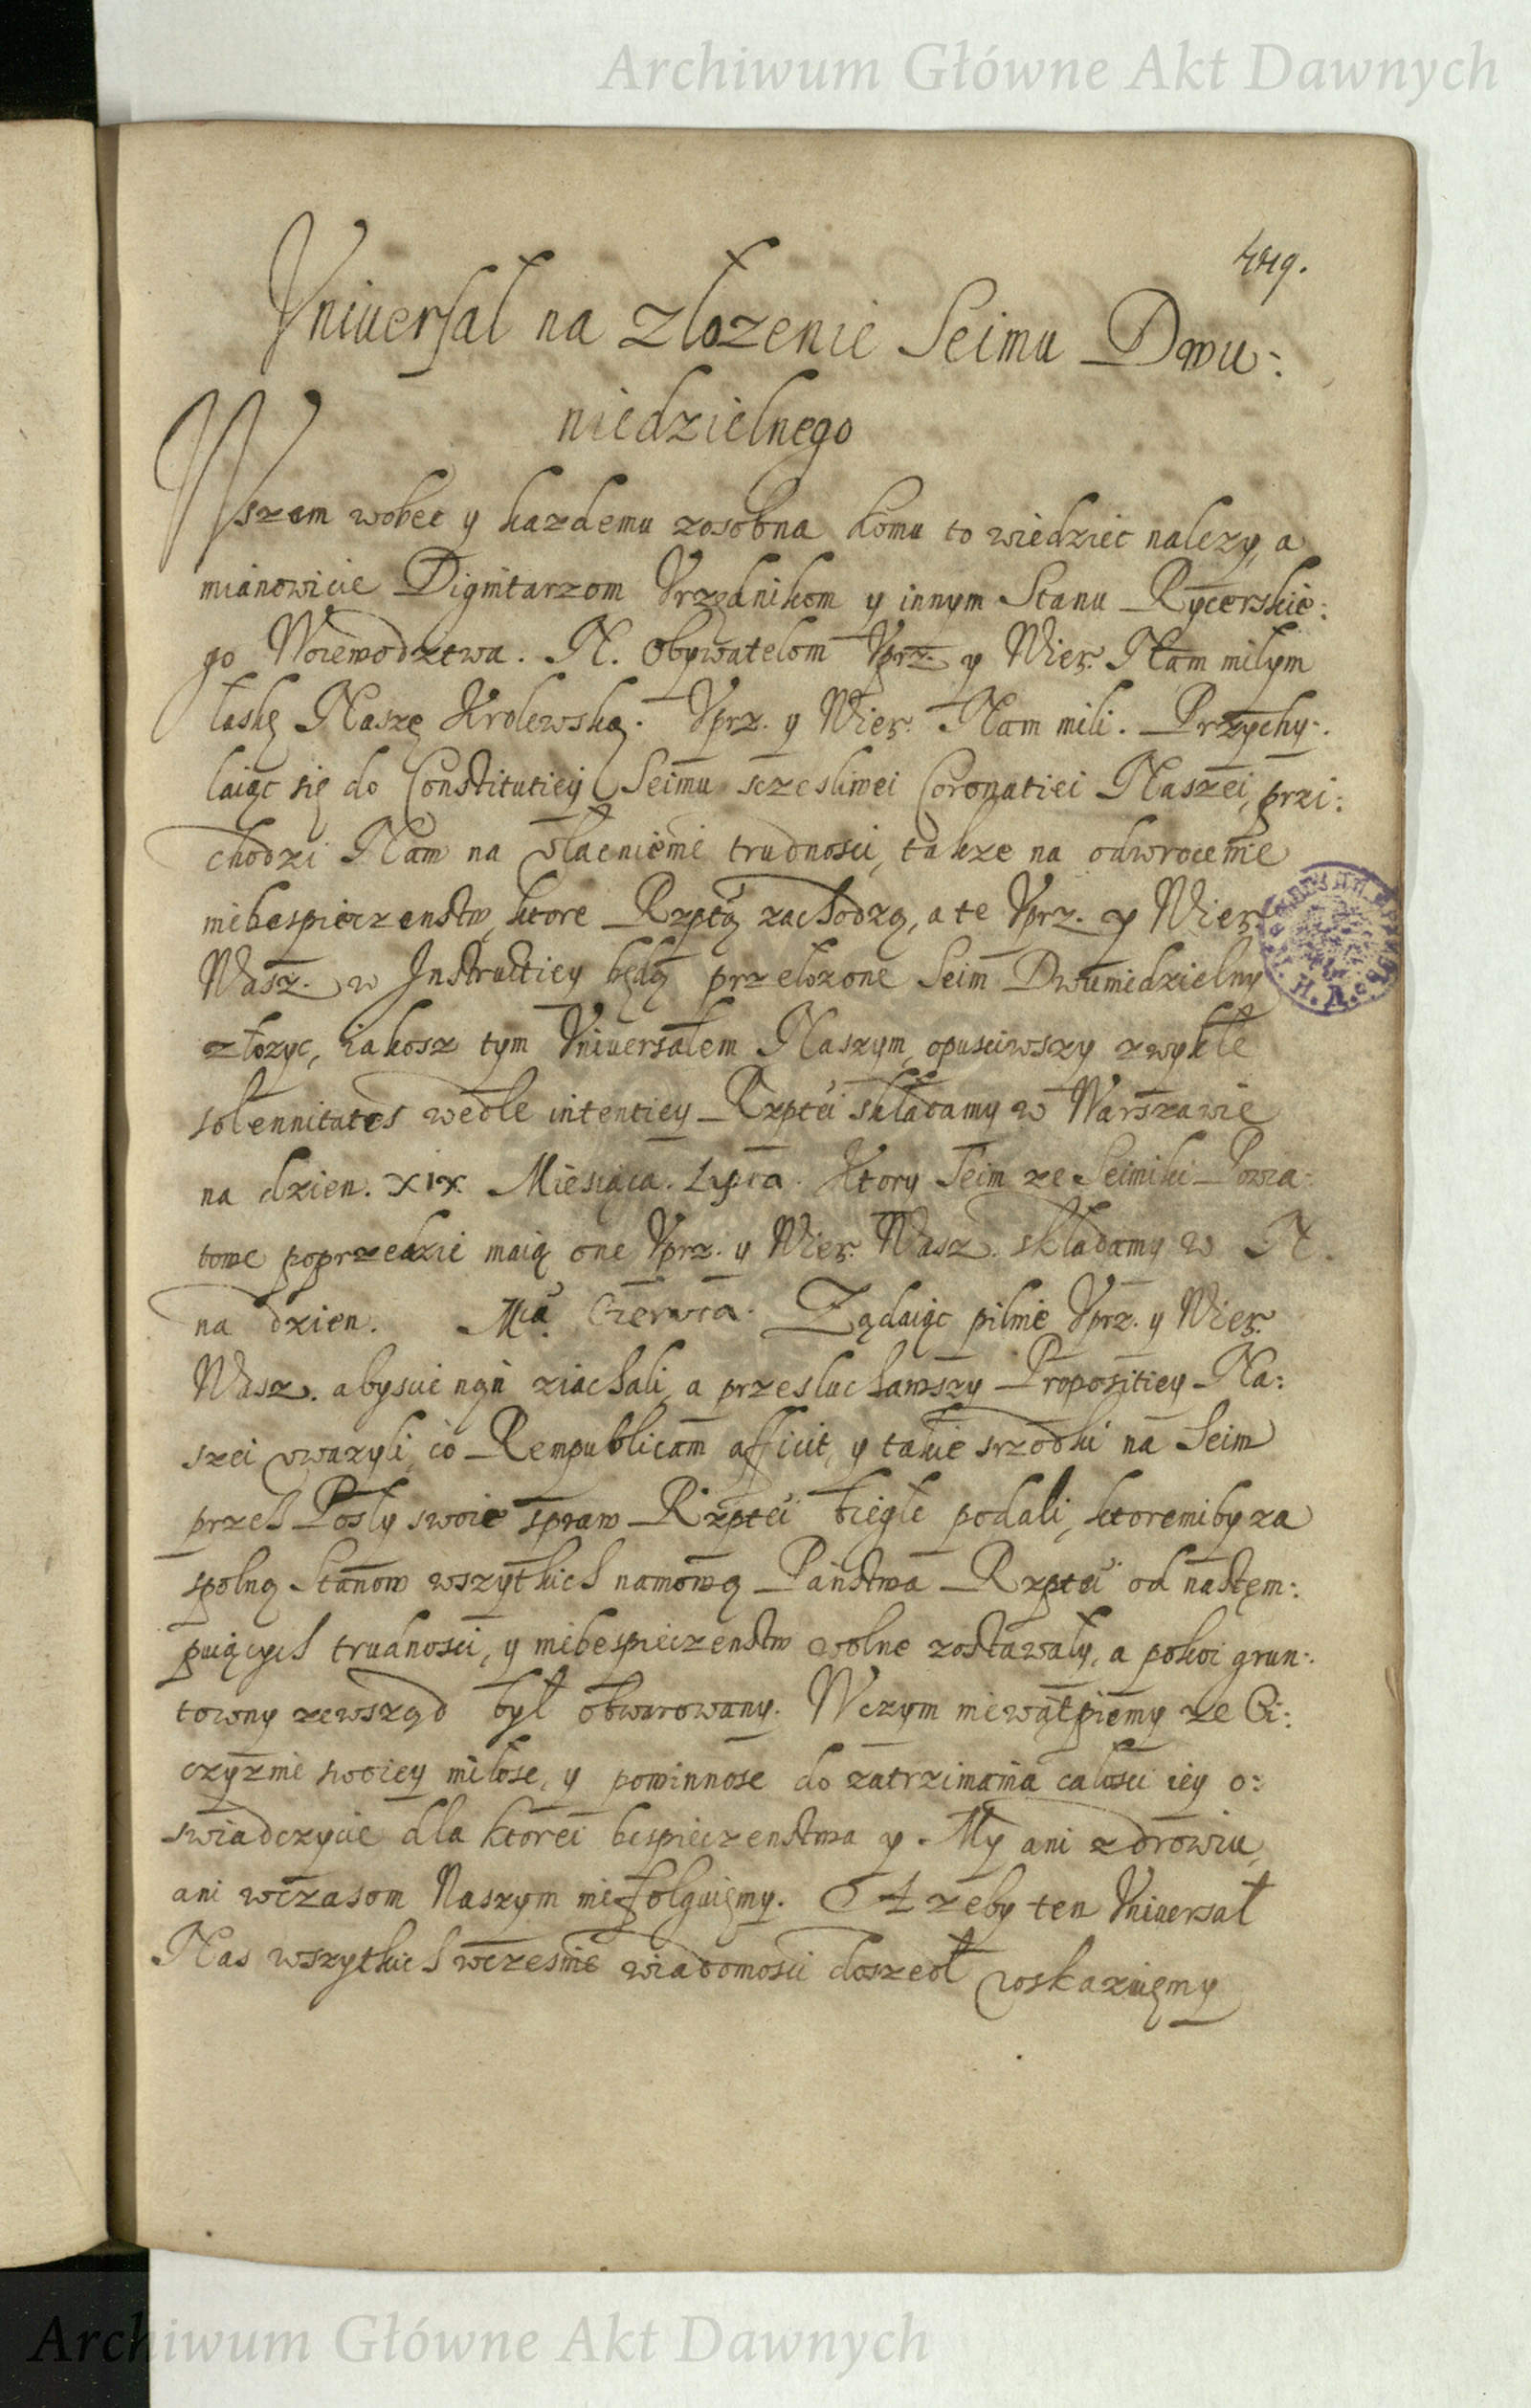 Archiwum Główne Akt Dawnych
449.
Vniuersał na złozenie Seimu Dwu:
niedzielnego
Wszem wobec y kazdemu zosobna komu to wiedziec nalezy, a
mianowicie Dignitarzom Vrzednikom y innym Stanu Rycerskie:
go Woiewodztwa. N. Obywatelom Vprz. y Wier. Nam miłym
łaskę Naszę Krolewską. Vprz. y Wier. Nam mili. Przychy:
laiąc się do Constitutiey Seimu sczesliwei Coronatiei Naszei, przi:
chodzi Nam na vlacnienie trudnosci, takze na odwrocenie
niebespieczenstw, ktore Rzptą zachodzą, a te Vprz. y Wier.
Wasz. w Instructiey będą przełozone Seim Dwuniedzielny
złozyc, iakosz tym Vniuersałem Naszym, opusciwszy zwykłe
solennitates wedle intentiey Rzptei składamy w Warszawie
na dzien. XIX. Miesiąca. Lipca. Ktory Seim ze Seimiki Powia:
towe poprzedzic maią one Vprz. y Wier. Wasz. składamy w N.
na dzien. Mca. Czerwca. Ządaiąc pilnie Vprz. y Wier.
Wasz. abyscie nań ziachali, a przesluchawszy Propositiey Na:
szei vwazyli, co Rempublicam afficit, y takie srzodki na Seim
przes Posły swoie spraw Rzptei biegłe podali, ktoremiby za
spolną Stanow wszytkich namową Państwa Rzptei od nastęm:
puiących trudnosci, y niebespieczenstw wolne zostawały, a pokoi grun:
towny zewsząd był obwarowany. Wczym niewątpiemy ze Oi:
czyznie swoiey miłosc, y powinnosc do zatrzimania całosci iey o:
swiadczycie dla ktorei bespieczenstwa y My ani zdrowiu,
ani wczasom Naszym niefolguięmy. A zeby ten Vniuersał
Nas wszytkich wczesnie wiadomosci doszedł roskazuięmy
Archiwum Główne Akt Dawnych